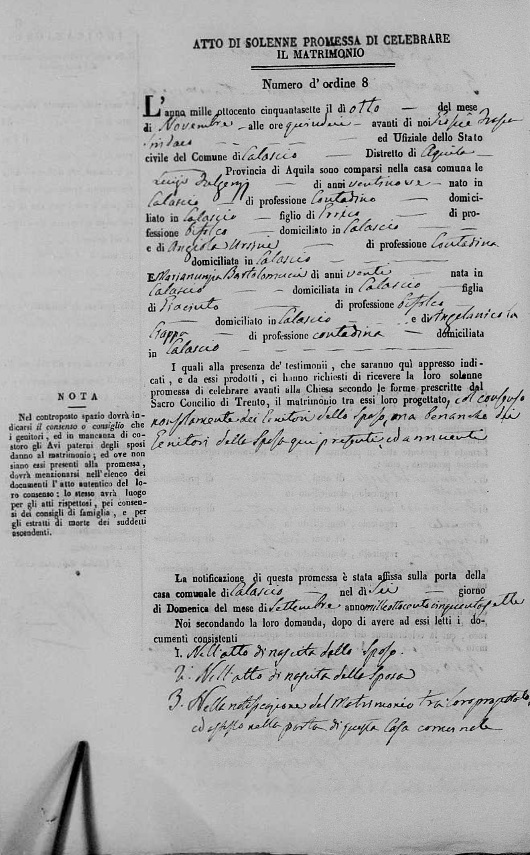 ATTO DI SOLENNE PROMESSA DI CELEBRARE
IL MATRIMONIO
Numero d' ordine 8
L'anno mille ottocento cinquantasette il dì otto — del mese
di Novembre — alle ore quindici — avanti di noi
Sindaco — ed Ufiziale dello Stato
civile del Comune di Calascio — Distretto di Aquila —
Provincia di Aquila sono comparsi nella casa comuna le
Luigi — di anni ventinove — nato in
Calascio — di professione Contadino — domici-
liato in Calascio — figlio di Errico — di pro-
fessione Bifolco — domiciliato in Calascio —
e di Angiola Ursini — di professione Contadina
domiciliata in Calascio —
E Mariannunzia Bartolomucci di anni venti — nata in
Calascio — domiciliata in Calascio — figlia
di Giacinto — di professione Bifolco
— domiciliato in Calascio — e di Angelanicola
— di professione contadina — domiciliata
in Calascio —
I quali alla presenza de' testimonii , che saranno quì appresso indi-
cati , e da essi prodotti , ci hanno richiesti di ricevere la loro solenne
promessa di celebrare avanti alla Chiesa secondo le forme prescritte dal
Sacro Concilio di Trento, il matrimonio tra essi loro progettato, col consenso
non solamente dei Genitori dello Sposo, ma benanche dei
Genitori della Sposa qui presente ed annuenti
NOTA
Nel controposto spazio dovrà in-
dicarsi il consenso o consiglio che
i genitori, ed in mancanza di co-
storo gli Avi paterni degli sposi
danno al matrimonio; ed ove non
siano essi presenti alla promessa,
dovrà menzionarsi nell'elenco dei
documenti l' atto autentico del lo-
ro consenso; lo stesso avrà luogo
per gli atti rispettosi, pei consen-
si dei consigli di famiglia, e per
gli estratti di morte dei suddetti
ascendenti.
La notificazione di questa promessa è stata affissa sulla porta della
casa comunale di Calascio — nel dì Sei — giorno
di Domenica del mese di Settembre anno mille ottocento cinquantasette
Noi secondando la loro domanda, dopo di avere ad essi letti i do-
cumenti consistenti
1. Nell'atto di nascita dello Sposo.
2. Nell'atto di nascita della Sposa
3. Nella notificazione del Matrimonio tra loro progettato
ed affisso nella porta di questa Casa comunale